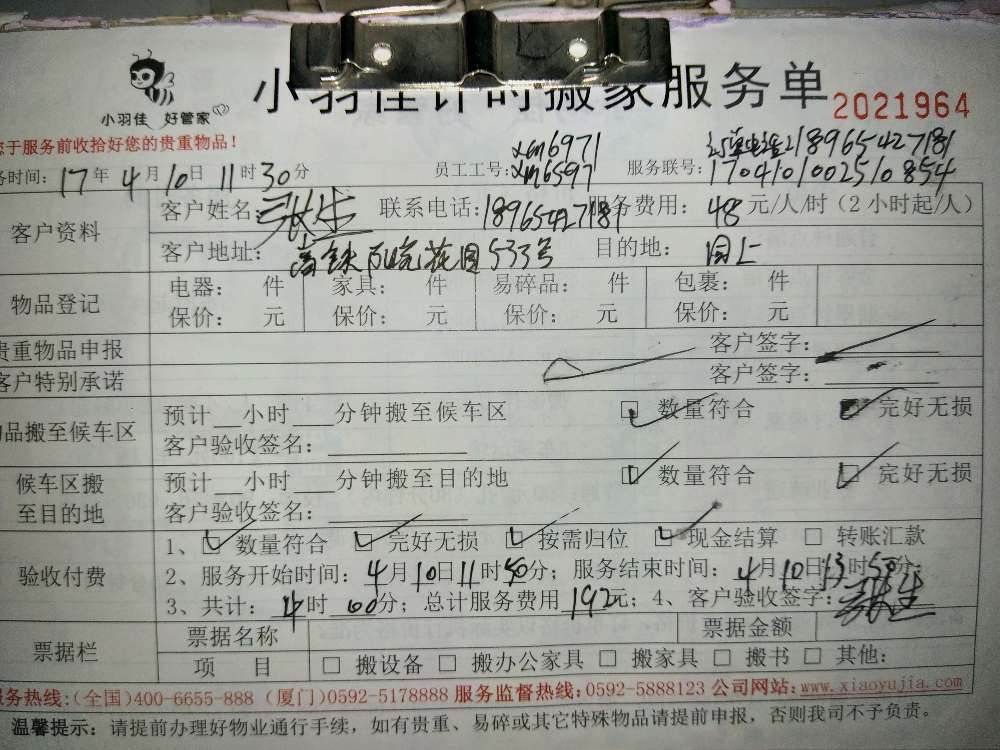 小羽佳计时搬家服务单
小羽佳 好管家
2021964
您于服务前收拾好您的贵重物品！
务时间：17年4月10日11时30分 员工工号：xm6971 xm6597 服务联号：订单电话218965427181 1704101002510854
客户资料 客户姓名：张生 联系电话：18965427181 服务费用：48元/人/时（2小时起/人）
客户地址：533号 目的地：同上
物品登记 电器： 件 家具： 件 易碎品： 件 包裹： 件
保价： 元 保价： 元 保价： 元 保价： 元
贵重物品申报 客户签字：
客户特别承诺 客户签字：
物品搬至候车区 预计__小时___分钟搬至候车区 ☑ 数量符合 ☑ 完好无损
客户验收签名：
候车区搬至目的地 预计__小时___分钟搬至目的地 ☑ 数量符合 ☑ 完好无损
客户验收签名：
验收付费 1、☑ 数量符合 ☑ 完好无损 ☑ 按需归位 ☑ 现金结算 □ 转账汇款
2、服务开始时间：4月10日11时50分；服务结束时间：4月10日13时50分；
3、共计：4时00分；总计服务费用192元；4、客户验收签字：张生
票据栏 票据名称 票据金额
项 目 □ 搬设备 □ 搬办公家具 □ 搬家具 □ 搬书 □ 其他：
服务热线：(全国)400-6655-888 (厦门)0592-5178888 服务监督热线：0592-5888123 公司网站：www.xiaoyujia.com
温馨提示：请提前办理好物业通行手续，如有贵重、易碎或其它特殊物品请提前申报，否则我司不予负责。